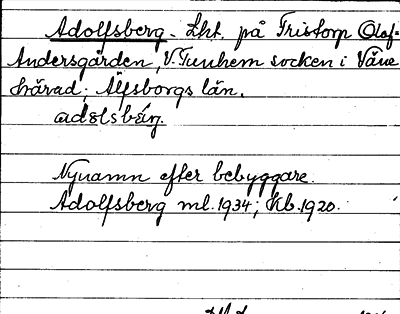 Adolfsberg. Lht. på Tristorp Olof-
Andersgården, V. Tunhem socken i Väne
härad, Älfsborgs län.
adɵlsbærj.
Nynamn efter bebyggare.
Adolfsberg ml. 1934; Kb. 1920.